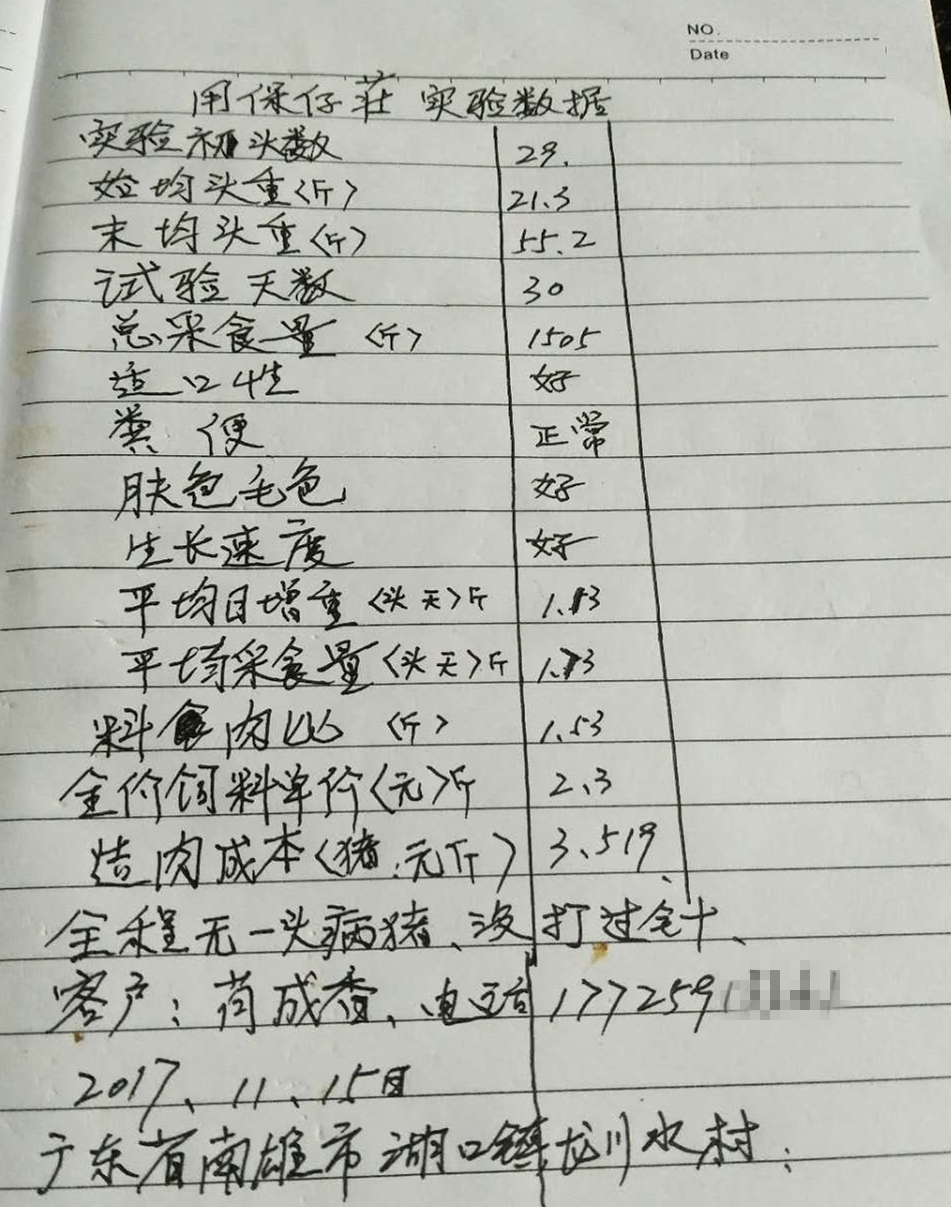 NO.
Date
用保仔莊 实验数据
实验初头数 29.
始均头重<斤> 21.3
末均头重<斤> 55.2
试验天数 30
总采食量 <斤> 1505
适口性 好
粪便 正常
肤色毛色 好
生长速度 好
平均日增重<头天>斤 1.13
平均采食量<头天>斤 1.73
料肉比 <斤> 1.53
全价饲料单价<元>斤 2.3
造肉成本<猪:元斤> 3.519
全程无一头病猪、没打过针、
客户:苟成香、电话177259
2017、11、15日
广东省南雄市湖口镇龙川水村: